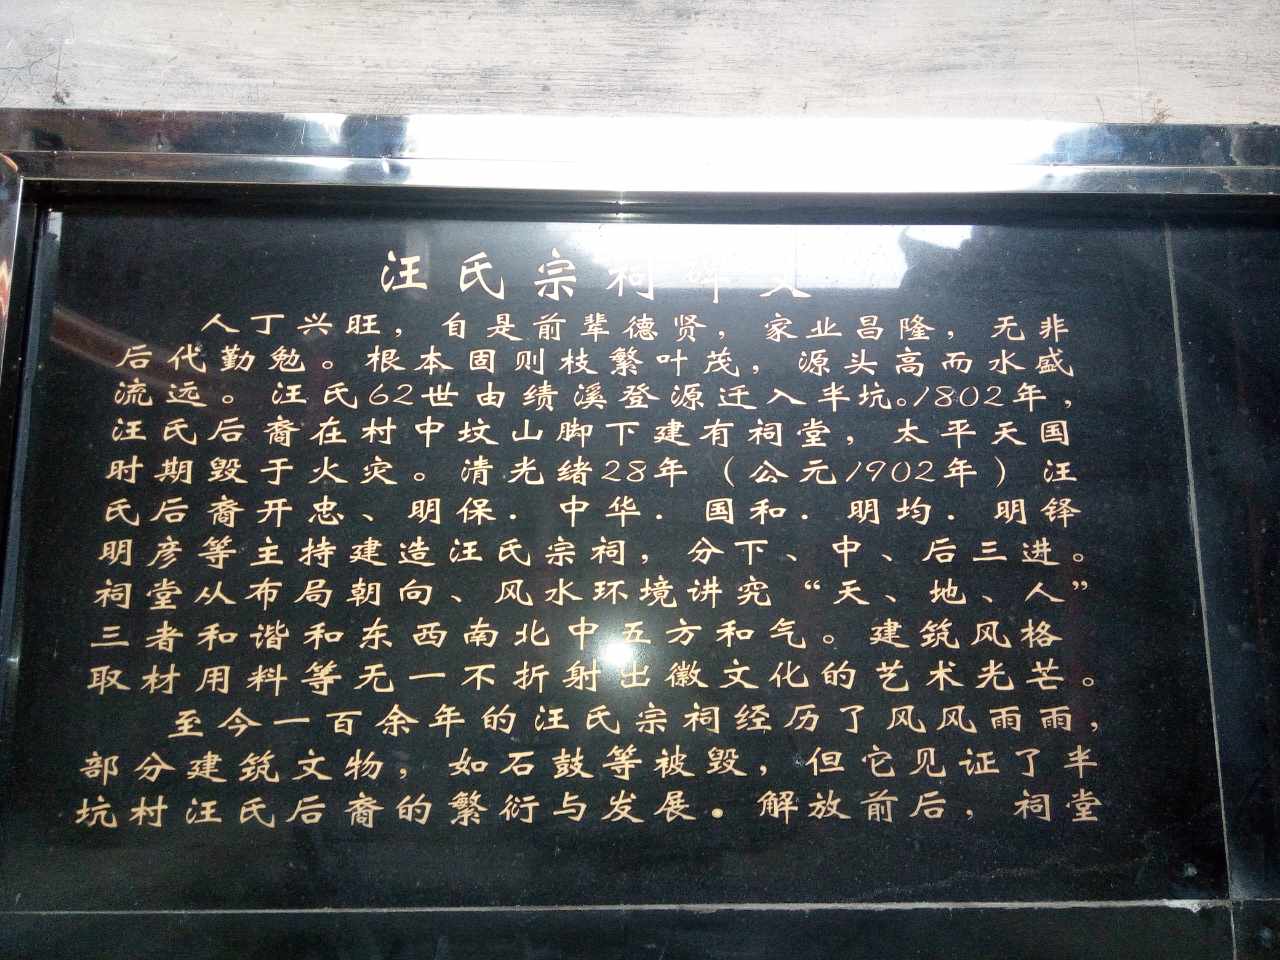 汪氏宗祠碑文
人丁兴旺，自是前辈德贤，家业昌隆，无非
后代勤勉。根本固则枝繁叶茂，源头高而水盛
流远。汪氏62世由绩溪登源迁入半坑。1802年，
汪氏后裔在村中坟山脚下建有祠堂，太平天国
时期毁于火灾。清光绪28年（公元1902年）汪
氏后裔开忠、明保．中华．国和．明均．明铎
明彦等主持建造汪氏宗祠，分下、中、后三进。
祠堂从布局朝向、风水环境讲究“天、地、人”
三者和谐和东西南北中五方和气。建筑风格
取材用料等无一不折射出徽文化的艺术光芒。
至今一百余年的汪氏宗祠经历了风风雨雨，
部分建筑文物，如石鼓等被毁，但它见证了半
坑村汪氏后裔的繁衍与发展．解放前后，祠堂